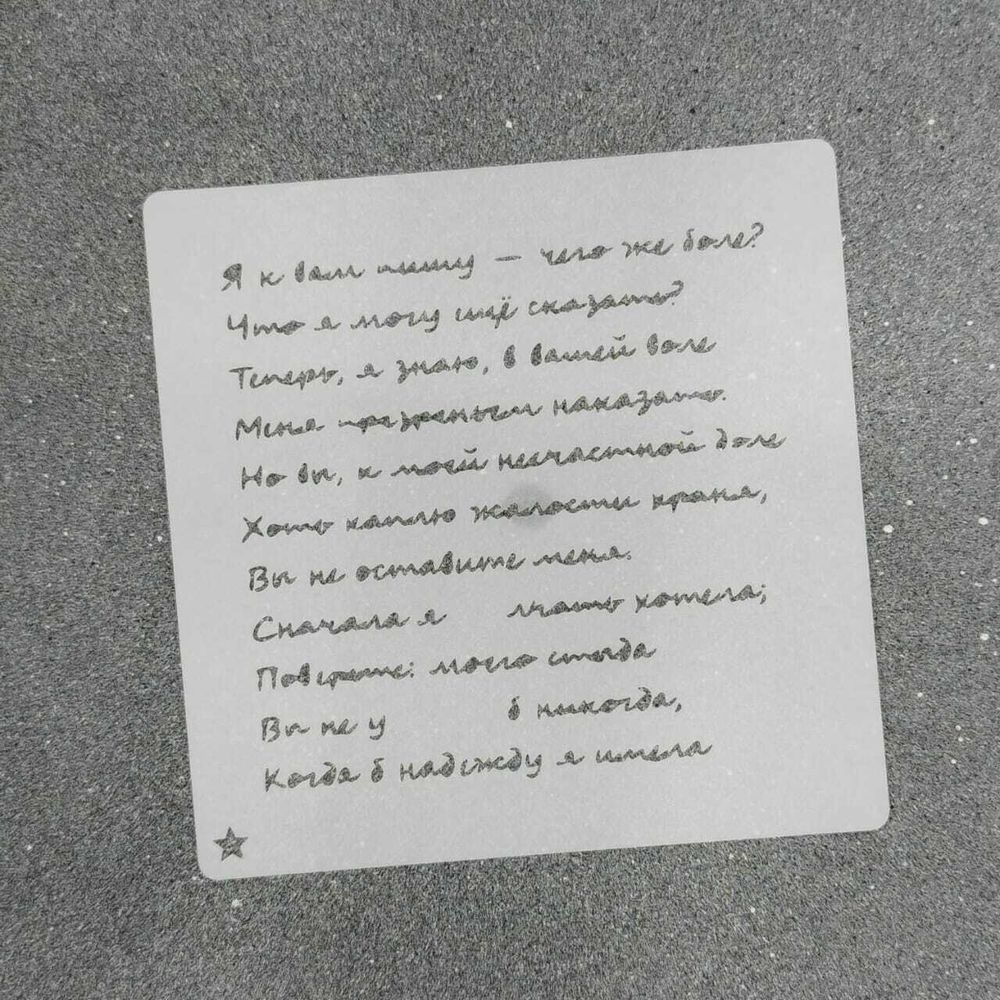 Я к вам пишу — чего же боле?
Что я могу ещё сказать?
Теперь, я знаю, в вашей воле
Меня презреньем наказать.
Но вы, к моей несчастной доле
Хоть каплю жалости храня,
Вы не оставите меня.
Сначала я хотела;
Поверьте: моего стыда
Вы не у б никогда,
Когда б надежду я имела